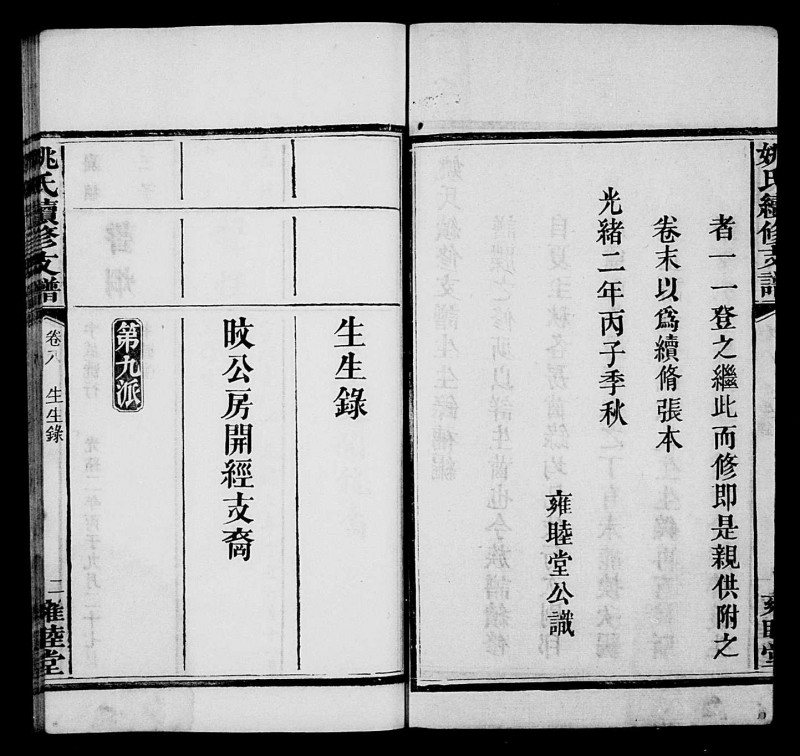 姚氏續修支譜
雍睦堂
者一一登之繼此而修即是親供附之
卷末以爲續脩張本
光緒二年丙子季秋
雍睦堂公識
生生錄
旼公房開經支裔
第九派
姚氏續修支譜
卷八
生生錄
二
雍睦堂